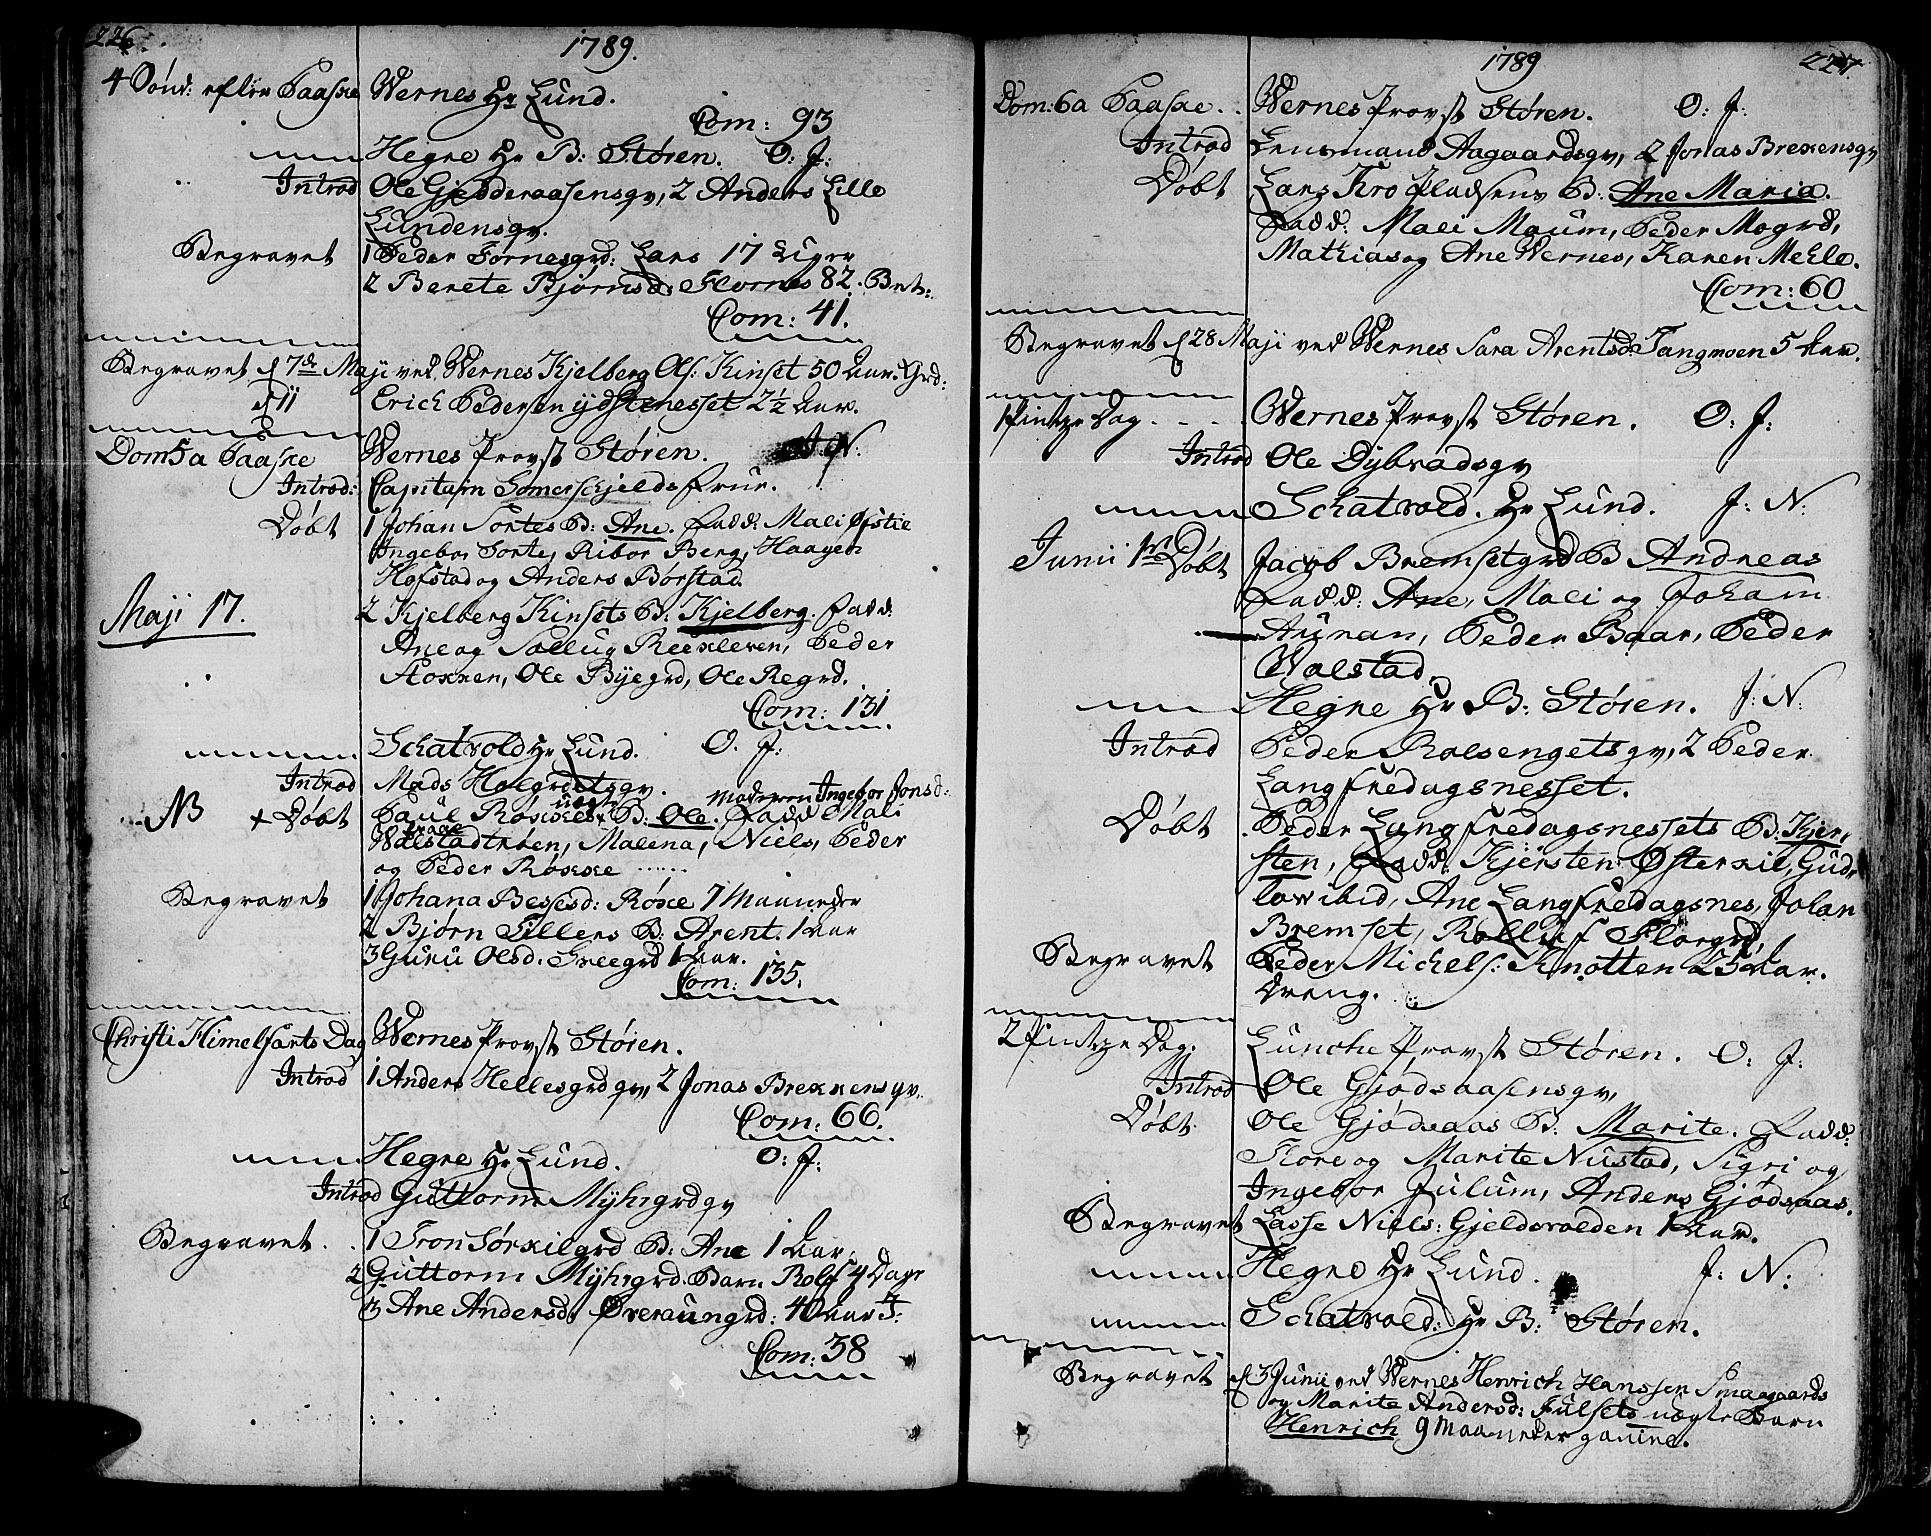 226.
1789.
4 Sønd: efter Paaske Wernes Hr Lund.
Com: 93
Hegre Hr B: Støren. O: J:
Introd Ole Gjedderaasensgv, 2 Anders Lille
Lundensgv.
Begravet 1 Peder Fornesgrd: Lars 17 Uger
2 Berete Bjørnsd: Flornes 82.
Com: 41.
Begravet d 7de Maji ved Wernes Kjelberg Ols: Kinset 50 Aar. Grd:
d 11 Erich Pedersen ydstenesset 2½ Aar.
Dom 5 a Paaske Wernes Provst Støren. N:
Introd: Capitain Somerschjelds Frue.
Døbt 1 Johan Sortes B: Ane. Fadd: Mali Øfstie
Ingebor Sorte, Ribor Berg, Haagen
Hofstad og Anders Børstad
Maji 17.
2 Kjelberg Kinsets B: Kjelberg. Fadd:
Ane og Sollug Reekleven, Peder
Stokken, Ole Byegrd, Ole Regrd.
Com: 131
Schatvold Hr Lund. O. J:
Introd Mads Holgrdetsgv.
NB + Døbt Paul Røskes uægte B: Ole. Moderen Ingebor Jonsd: Fadd Mali
Walstadtrøen, Malena, Niels, Peder
og Peder Røskke
Begravet 1 Johana Besesd: Røske 7 Maaneder
2 Bjørn Tillers B: Arent. 1 Aar
3 Guru Olsd. Greegrd 1 Aar.
Com: 135.
Christi Himelfarts Dag Wernes Provst Støren.
Introd 1 Anders Hellesgrdgv, 2 Jonas Brekkensgv.
Com: 66.
Hegre Hr Lund. O: J:
Introd Guttorm Myhrgrdgv
Begravet 1 Tron Sørkilgrd B: Ane 1 Aar.
2 Guttorm Myhrgrd: Barn Rolf 4 Dage
3 Ane Andersd: Øveraungrd: 40 Aar
Com: 38
1789
227.
Dom: 6 a Paaske Wernes Provst Støren. O: J:
Introd Lensmand Aagaardsgv, 2 Jonas Brekensgv
Døbt Lars Kro Pladsens B: Ane Maria.
Fadd: Mali Maum, Peder Mogrd,
Mathias og Ane Wernes, Karen Mehle.
Com: 60
Begravet d 28 Maji ved Wernes Sara Arentsd: Tangmoen 5 Aar.
1 Pintze Dag Wernes Provst Støren. O: J:
Introd Ole Dybvadsgv
Schatvold. Hr Lund. J: N:
Junii 1ste Døbt Jacob Bremsetgrd B Andreas
Fadd: Ane, Mali og Johan
Aunan, Peder Baar, Peder
Walstad.
Hegre Hr B: Støren. J: N:
Introd Peder Rolsengetsgv, 2 Peder
Langfredagsnesset.
Døbt Peder Langfredagsnessets B: Kjer-
sten, Fadd: Kjersten Østerkil, Gud-
lov ibid, Ane Langfredagsnes, Johan
Bremset, Rolluf Florgrd,
Begravet Peder Michels: Knotten 25 Aar.
Dreng.
2 Pintze Dag. Lunche Provst Støren. O: J:
Introd Ole Gjødsaasensgv,
Døbt Ole Gjødsaas B: Marite. Fadd:
Tore og Marite Nustad, Sigri og
Ingebor Julum, Anders Gjødsaas.
Begravet Lasse Niels: Gjeldsvolden 1 Aar.
Hegre Hr Lund. J: N:
Schatvold: Hr B: Støren.
Begravet d 3 Junii ved Wernes Henrich Hanssen Smaagaards
og Marite Andersd: Fulsets uægte Barn
Henrich 9 Maaneder